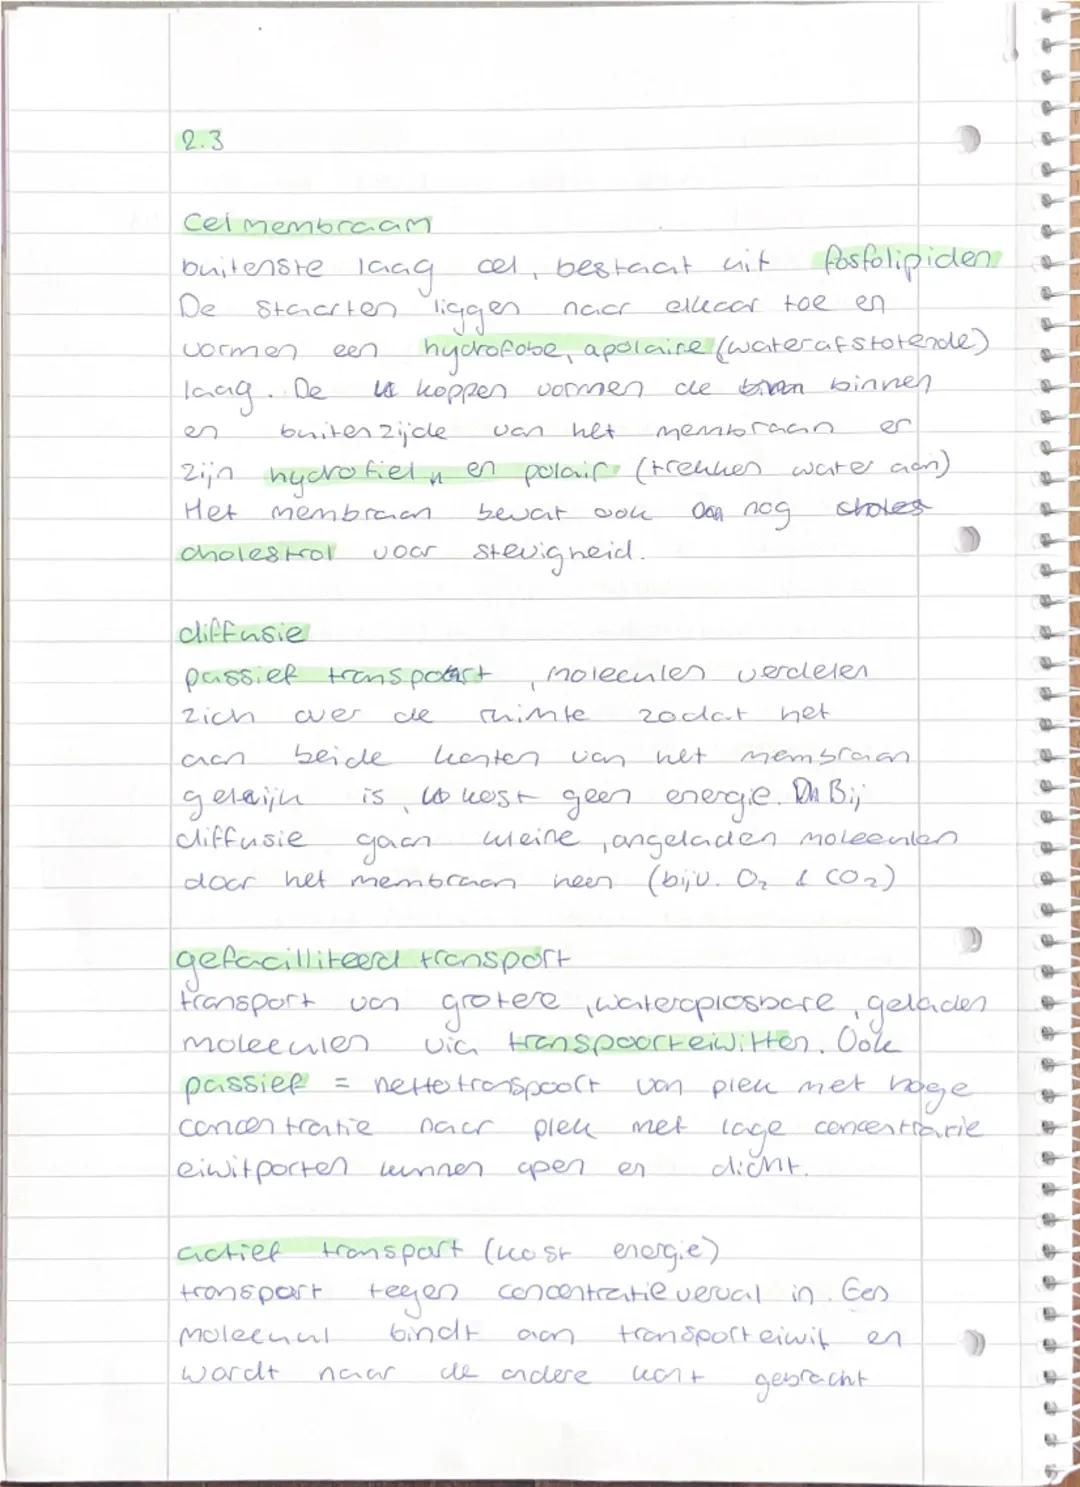 2.3
Celmembraam
buitenste laag cel, bestaat uit fosfolipiden
De staarten liggen naar elkaar toe en
vormen een hydrofobe, apolaire (waterafstotende)
laag. De koppen vormen de binnen
en buitenzijde van het membraan en
zijn hydrofiel en polair (trekken water aan)
Het membraan bevat ook nog
cholestrol voor stevigheid.
diffusie
passief transport, moleculen verdelen
zich over de ruimte zodat het
aan beide kanten van het membraan
gelijk is, kost geen energie. Bij
diffusie gaan kleine, ongeladen moleculen
door het membraan heen (bijv. O₂ & CO₂)
gefacilliteerd transport
transport van grotere, wateroplosbare, geladen
moleculen via transpoorteiwitten. Ook
passief = nettotranspoort van plek met hoge
concentratie naar plek met lage concentratie
eiwitporten kunnen open en dicht.
actief transport (kost energie)
transport tegen concentratieverval in. Een
molecuul bindt aan transporteiwit en
wordt naar de andere kant gebracht